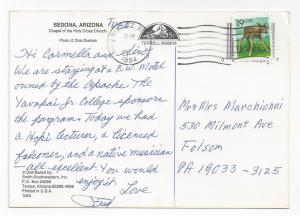 SEDONA, ARIZONA
Chapel of the Holy Cross Church
Photo © Dick Dietrich
Tues
1994
19 USA
Hi Carmella and
We are staying at a B.W. Motel
owned by the Apache. The
Yavapai Jr College sponsors
the program. Today we had
a Hopi lecturer, a licensed
falconer, and a native musician
— all excellent. You would
enjoy it
Love
Fred
Mr & Mrs Marchionni
530 Milmont Ave
Folsom
PA 19033-3125
© Distributed by:
Smith-Southwestern, Inc.
Tempe, Arizona
Printed in U.S.A.